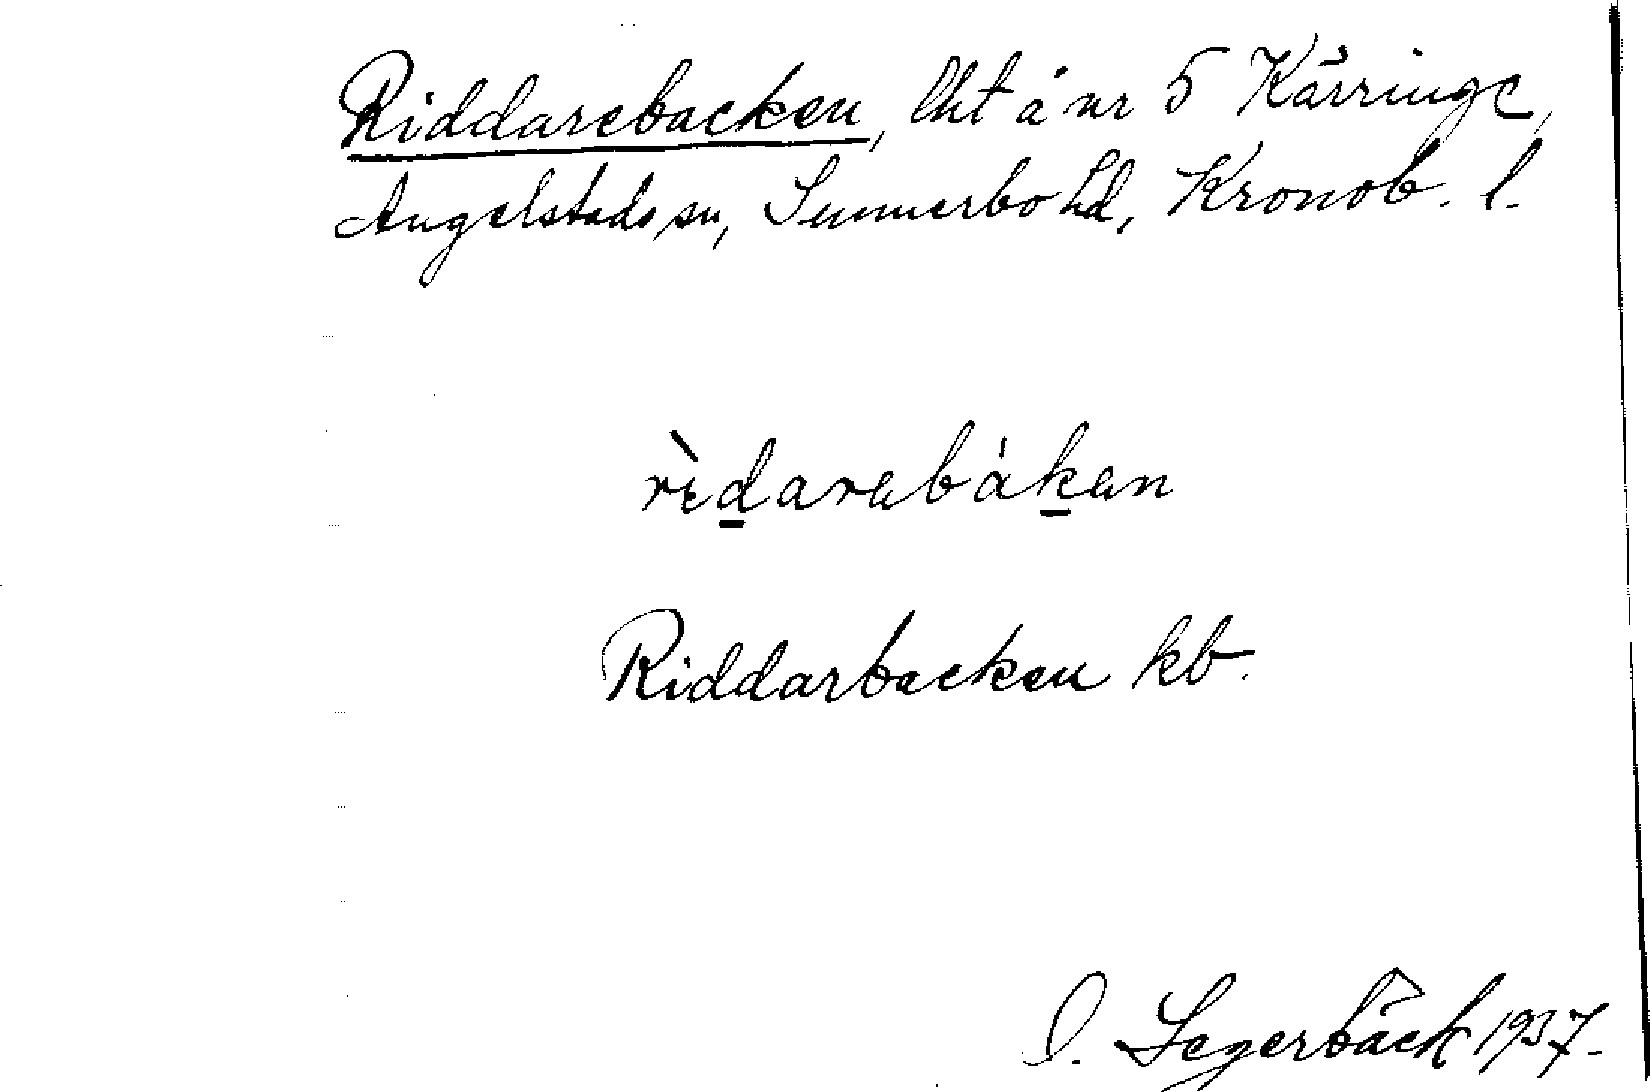 Riddarebacken, lht å nr 5 Kärringe,
Angelstads sn, Sunnerbo hd, Kronob. l.
rìdarabákan
Riddarbacken kb.
Segerbäck 1937.